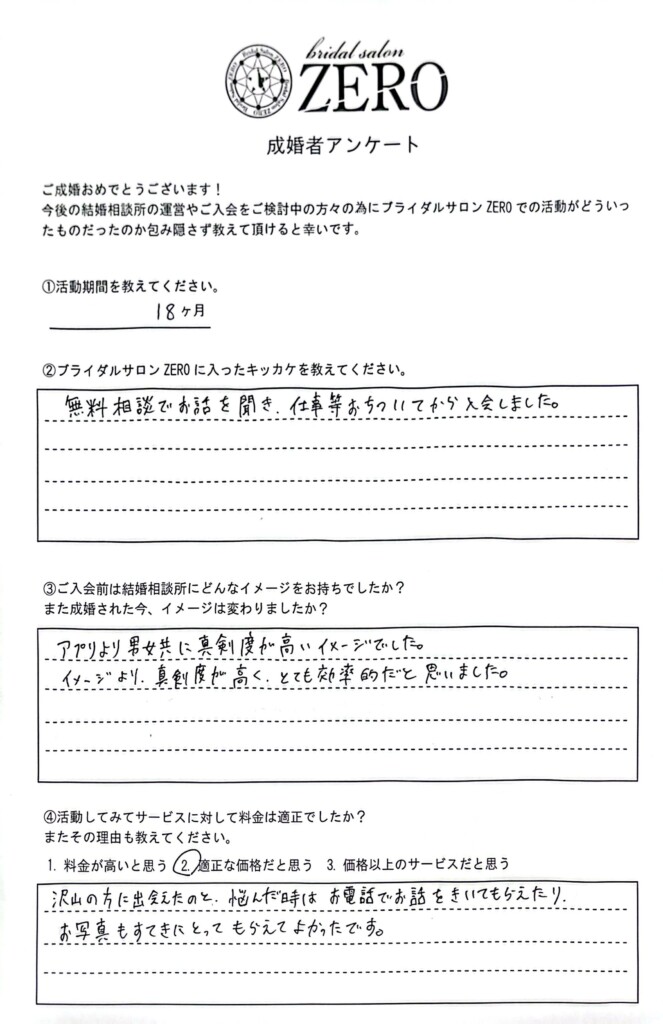 bridal salon
ZERO
成婚者アンケート
ご成婚おめでとうございます！
今後の結婚相談所の運営やご入会をご検討中の方々の為にブライダルサロン ZERO での活動がどういっ
たものだったのか包み隠さず教えて頂けると幸いです。
①活動期間を教えてください。
18ヶ月
②ブライダルサロン ZERO に入ったキッカケを教えてください。
無料相談でお話を聞き、仕事等おちついてから入会しました。
③ご入会前は結婚相談所にどんなイメージをお持ちでしたか？
また成婚された今、イメージは変わりましたか？
アプリより男女共に真剣度が高いイメージでした。
イメージより、真剣度が高く、とても効率的だと思いました。
④活動してみてサービスに対して料金は適正でしたか？
またその理由も教えてください。
1. 料金が高いと思う 2. 適正な価格だと思う 3. 価格以上のサービスだと思う
沢山の方に出会えたのと、悩んだ時はお電話でお話をきいてもらえたり、
お写真もすてきにとってもらえてよかったです。